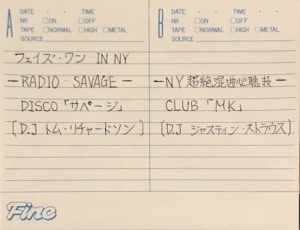 A DATE ・ ・ TIME
NR □ON □OFF
TAPE □NORMAL □HIGH □METAL
SOURCE
フェイズ・ワン IN NY
ーRADIO・SAVAGEー
DISCO「サベージ」
(D.J トム・リチャードソン)
B DATE ・ ・ TIME
NR □ON □OFF
TAPE □NORMAL □HIGH □METAL
SOURCE
ーNY 超絶混曲必聴技ー
CLUB「MK」
(D.J ジャスティン・ストラウス)
Fine